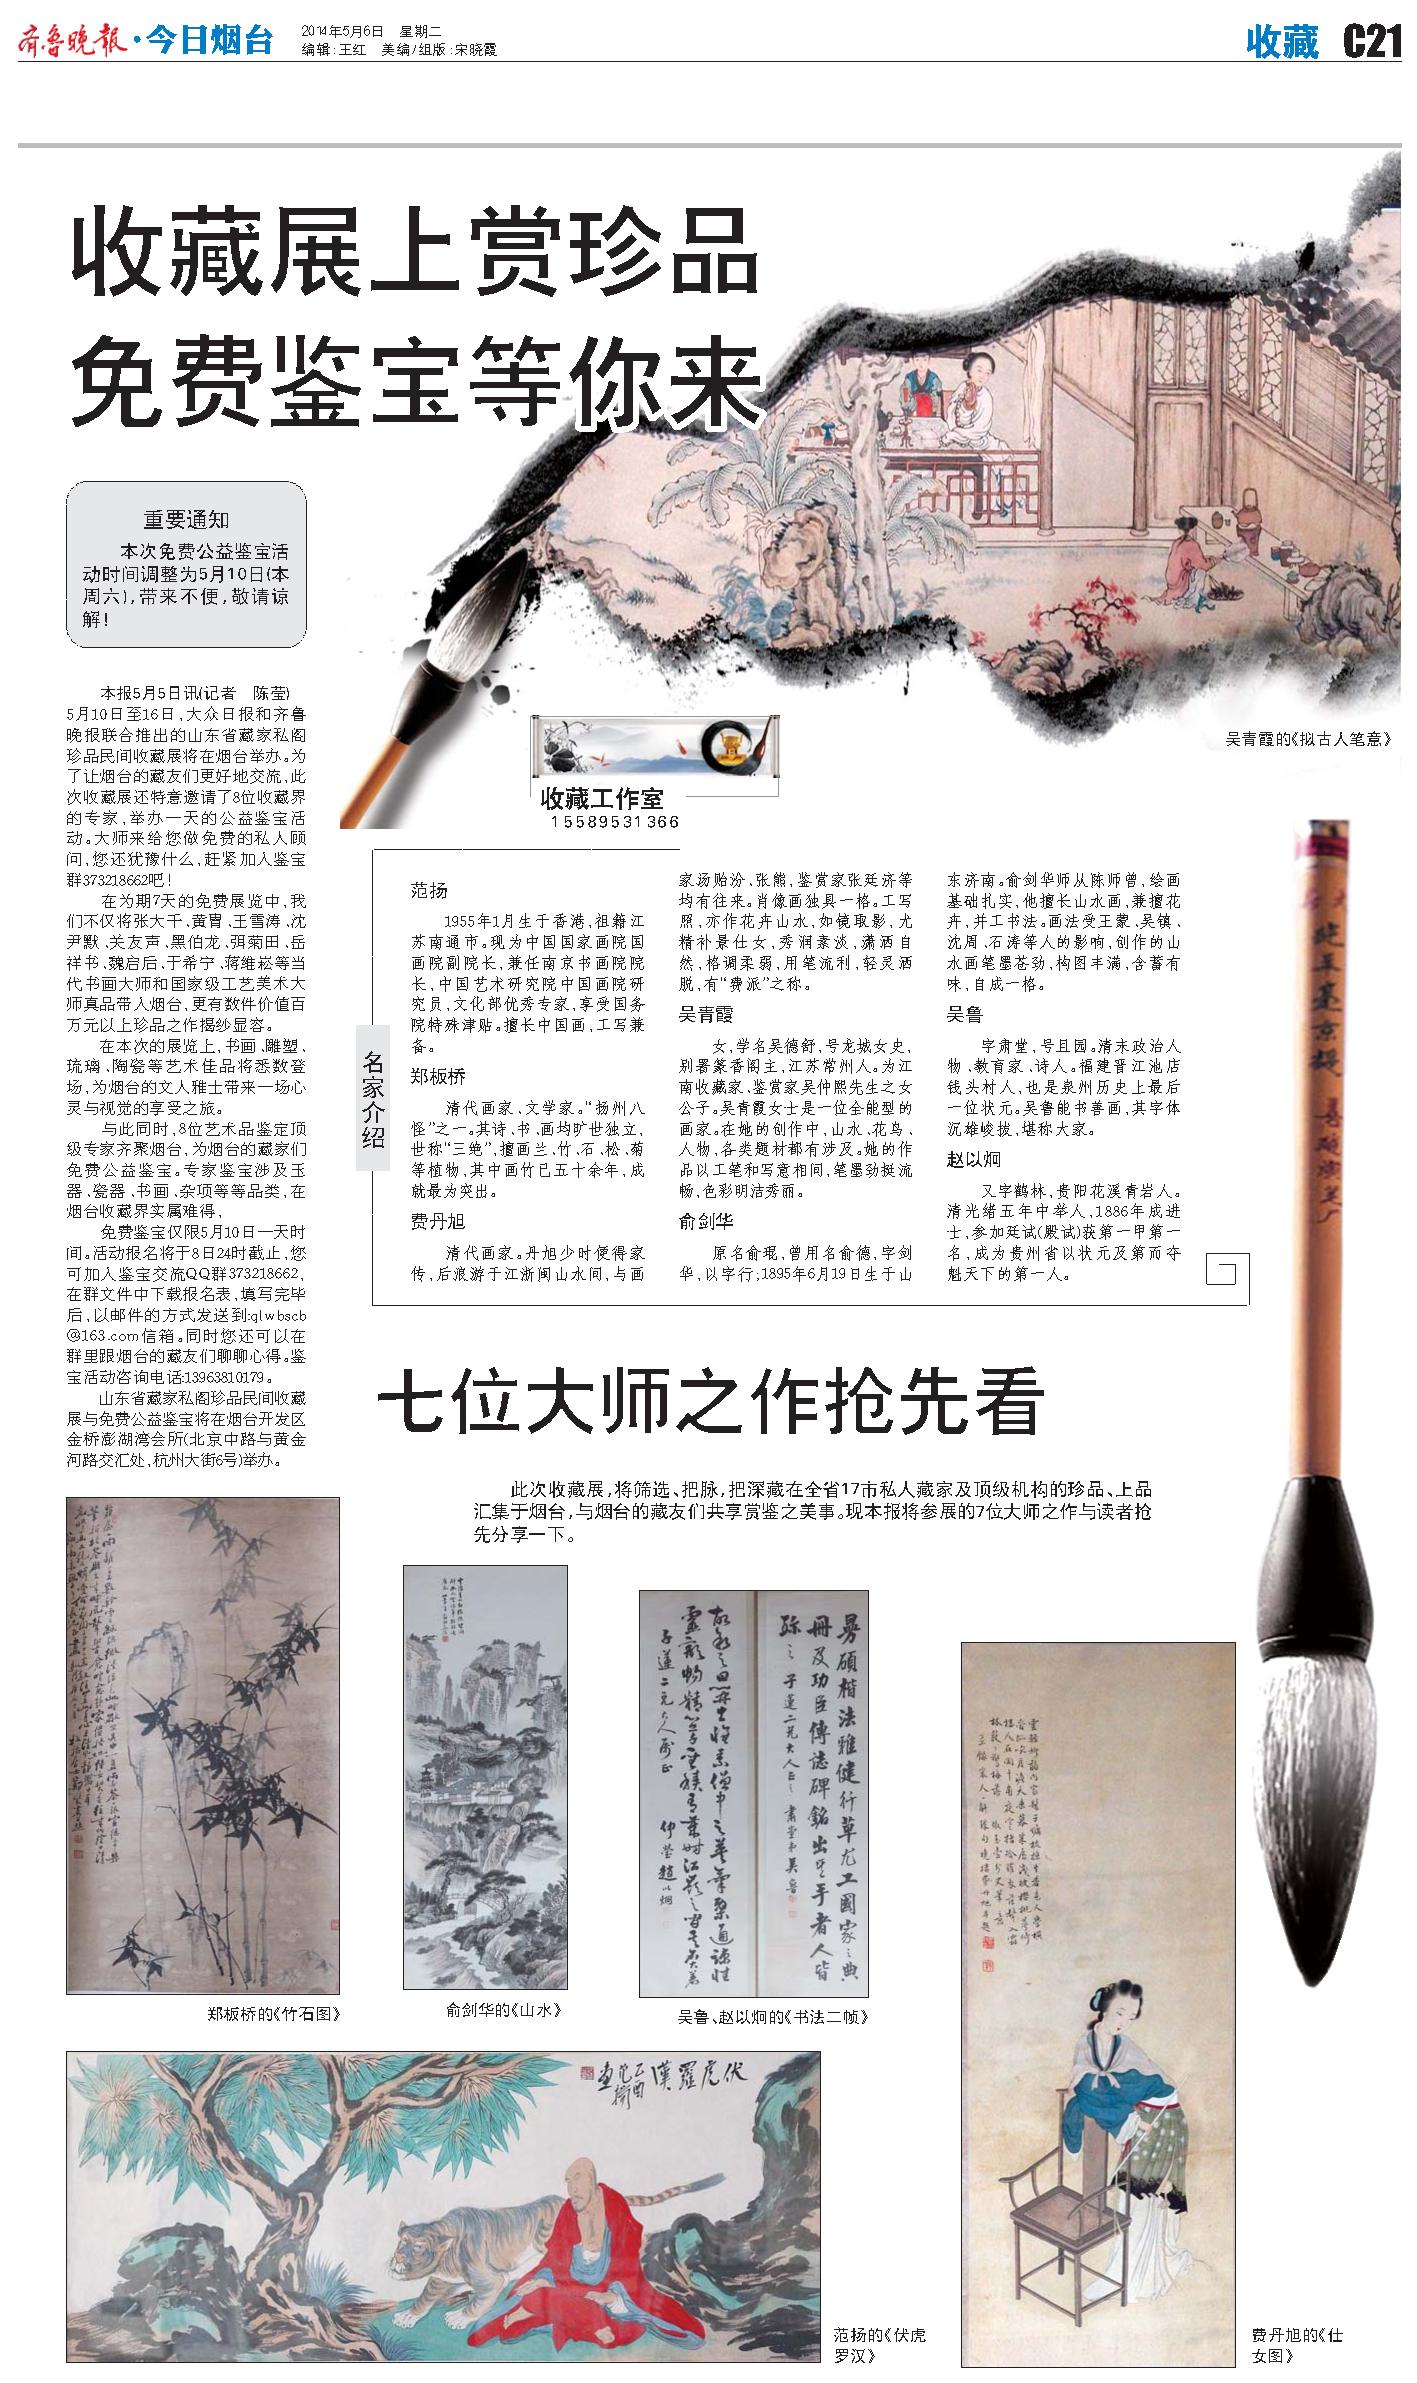 齐鲁晚报·今日烟台
2014年5月6日 星期二
编辑:王红 美编/组版:宋晓霞
收藏 C21
收藏展上赏珍品
免费鉴宝等你来
重要通知
本次免费公益鉴宝活
动时间调整为5月10日(本
周六),带来不便,敬请谅
解!
本报5月5日讯(记者 陈莹)
5月10日至16日,大众日报和齐鲁
晚报联合推出的山东省藏家私阁
珍品民间收藏展将在烟台举办。为
了让烟台的藏友们更好地交流,此
次收藏展还特意邀请了8位收藏界
的专家,举办一天的公益鉴宝活
动。大师来给您做免费的私人顾
问,您还犹豫什么,赶紧加入鉴宝
群373218662吧!
在为期7天的免费展览中,我
们不仅将张大千、黄胄、王雪涛、沈
尹默、关友声、黑伯龙、弭菊田、岳
祥书、魏启后、于希宁、蒋维崧等当
代书画大师和国家级工艺美术大
师真品带入烟台,更有数件价值百
万元以上珍品之作揭纱显容。
在本次的展览上,书画、雕塑、
琉璃、陶瓷等艺术佳品将悉数登
场,为烟台的文人雅士带来一场心
灵与视觉的享受之旅。
与此同时,8位艺术品鉴定顶
级专家齐聚烟台,为烟台的藏家们
免费公益鉴宝。专家鉴宝涉及玉
器、瓷器、书画、杂项等等品类,在
烟台收藏界实属难得,
免费鉴宝仅限5月10日一天时
间。活动报名将于8日24时截止,您
可加入鉴宝交流QQ群373218662,
在群文件中下载报名表,填写完毕
后,以邮件的方式发送到:qlwbscb
@163.com信箱。同时您还可以在
群里跟烟台的藏友们聊聊心得。鉴
宝活动咨询电话:13963810179。
山东省藏家私阁珍品民间收藏
展与免费公益鉴宝将在烟台开发区
金桥澎湖湾会所(北京中路与黄金
河路交汇处,杭州大街6号)举办。
吴青霞的《拟古人笔意》
收藏工作室
15589531366
名家介绍
范扬
1955年1月生于香港,祖籍江
苏南通市。现为中国国家画院国
画院副院长,兼任南京书画院院
长,中国艺术研究院中国画院研
究员,文化部优秀专家,享受国务
院特殊津贴。擅长中国画,工写兼
备。
郑板桥
清代画家、文学家。“扬州八
怪”之一。其诗、书、画均旷世独立,
世称“三绝”,擅画兰、竹、石、松、菊
等植物,其中画竹已五十余年,成
就最为突出。
费丹旭
清代画家。丹旭少时便得家
传,后浪游于江浙闽山水间,与画
家汤贻汾、张熊,鉴赏家张廷济等
均有往来。肖像画独具一格。工写
照,亦作花卉山水,如镜取影,尤
精补景仕女,秀润素淡,潇洒自
然,格调柔弱,用笔流利,轻灵洒
脱,有“费派”之称。
吴青霞
女,学名吴德舒,号龙城女史,
别署篆香阁主,江苏常州人。为江
南收藏家、鉴赏家吴仲熙先生之女
公子。吴青霞女士是一位全能型的
画家。在她的创作中,山水、花鸟、
人物,各类题材都有涉及。她的作
品以工笔和写意相间,笔墨劲挺流
畅,色彩明洁秀丽。
俞剑华
原名俞琨,曾用名俞德,字剑
华,以字行;1895年6月19日生于山
东济南。俞剑华师从陈师曾,绘画
基础扎实,他擅长山水画,兼擅花
卉,并工书法。画法受王蒙、吴镇、
沈周、石涛等人的影响,创作的山
水画笔墨苍劲,构图丰满,含蓄有
味,自成一格。
吴鲁
字肃堂,号且园。清末政治人
物、教育家、诗人。福建晋江池店
钱头村人,也是泉州历史上最后
一位状元。吴鲁能书善画,其字体
沉雄峻拔,堪称大家。
赵以炯
又字鹤林,贵阳花溪青岩人。
清光绪五年中举人,1886年成进
士,参加廷试(殿试)获第一甲第一
名,成为贵州省以状元及第而夺
魁天下的第一人。
七位大师之作抢先看
此次收藏展,将筛选、把脉,把深藏在全省17市私人藏家及顶级机构的珍品、上品
汇集于烟台,与烟台的藏友们共享赏鉴之美事。现本报将参展的7位大师之作与读者抢
先分享一下。
晃硕楷法雅健行草尤工国家之典
册及功臣传志碑铭出其手者人皆
子莲二兄大人正之 肃堂弟吴鲁
子莲二兄大人属正
仲莹赵以炯
郑板桥的《竹石图》
俞剑华的《山水》
吴鲁、赵以炯的《书法二帧》
伏虎罗汉
乙酉
范扬
画
范扬的《伏虎
罗汉》
费丹旭的《仕
女图》